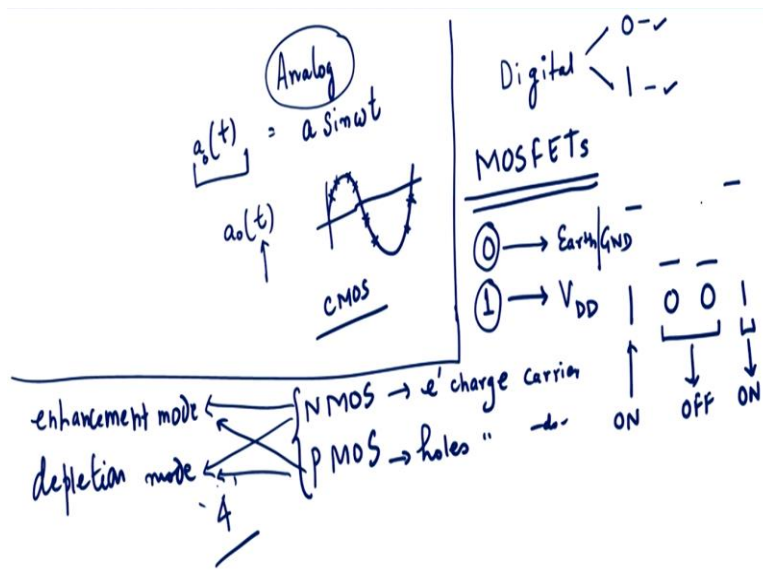 Analog
a₀(t) = a sinωt
a₀(t)
CMOS
Digital
0-✓
1-✓
MOSFETs
0 → Earth/GND
1 → VDD
1 0 0 1
ON OFF ON
enhancement mode
depletion mode
'4'
NMOS → e' charge carrier
PMOS → holes " -do-